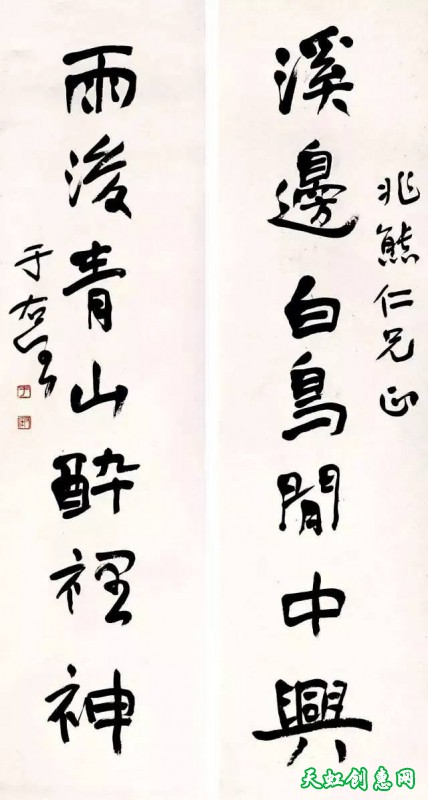 兆熊仁兄正
溪邊白鳥閒中興
雨後青山醉裡神
于右任
天虹创惠网